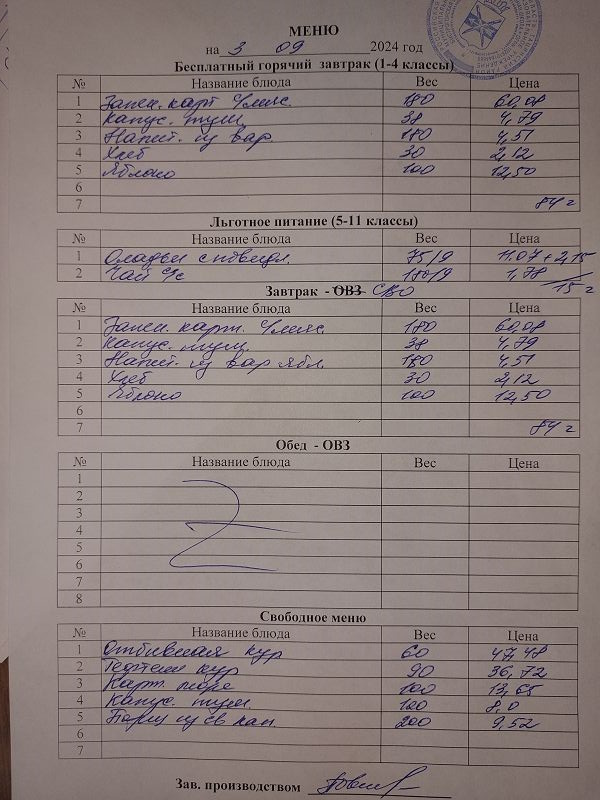 МЕНЮ
на 3 09 2024 год
Бесплатный горячий завтрак (1-4 классы)
№ Название блюда Вес Цена
1 Запек. карт с/мяс. 180 60,08
2 Капус. туш. 38 4,79
3 Напит. из вар. 180 4,51
4 Хлеб 30 2,12
5 Яблоко 100 12,50
6
7 84 г
Льготное питание (5-11 классы)
№ Название блюда Вес Цена
1 Оладьи с повидл. 75/9 11,07 + 2,15
2 Чай с/с 180/9 1,78
15 г
Завтрак - ОВЗ СВО
№ Название блюда Вес Цена
1 Запек. карт. с/мяс 180 60,08
2 Капус. туш. 38 4,79
3 Напит. из вар ябл. 180 4,51
4 Хлеб 30 2,12
5 Яблоко 100 12,50
6
7 84 г
Обед - ОВЗ
№ Название блюда Вес Цена
1
2
3
4
5
6
7
8
Свободное меню
№ Название блюда Вес Цена
1 Отбивная кур 60 47,48
2 Тефтели кур 90 36,72
3 Карт. пюре 100 13,65
4 Капус. туш. 100 8,0
5 Борщ из св кап. 200 9,52
6
7
Зав. производством